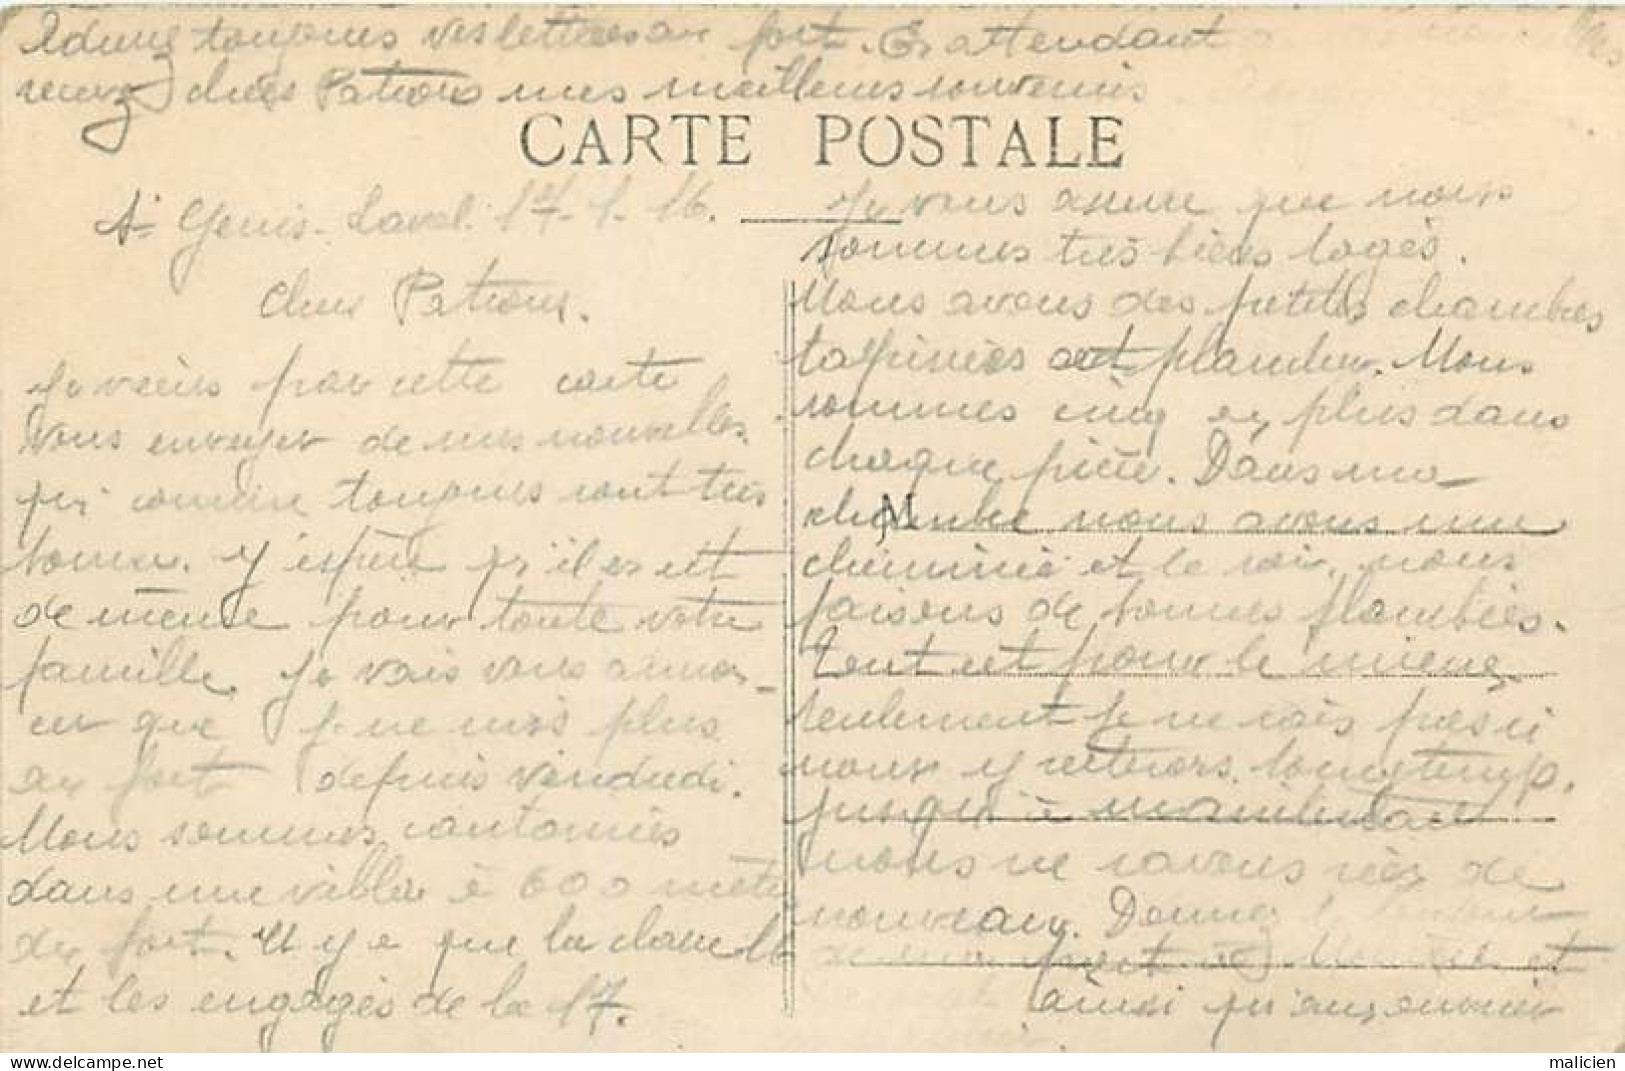 Adressez toujours vos lettres au fort. En attendant
recevez chers Patrons mes meilleurs souvenirs
CARTE POSTALE
St Genis-Laval. 17-1-16.
Chers Patrons.
Je viens par cette carte
vous envoyer de mes nouvelles
qui comme toujours sont très
bonnes. J'espère qu'il en est
de même pour toute votre
famille. Je vais vous annon-
cer que je ne suis plus
au fort depuis vendredi.
Nous sommes cantonnés
dans une villa à 600 mètres
du fort. Il y a que la classe 16
et les engagés de la 17.
Je vous assure que nous
sommes très bien logés.
Nous avons des petites chambres
tapissées et plancher. Nous
sommes cinq en plus dans
chaque pièce. Dans ma
chambre nous avons une
cheminée et le soir, nous
faisons de bonnes flambées.
Tout est pour le mieux
seulement je ne sais pas si
nous y resterons longtemps.
Jusqu'à maintenant
nous ne savons rien de
nouveau. Donnez le bonjour
de ma part à et
ainsi qu'aux ouvriers
malicien
delcampe.net